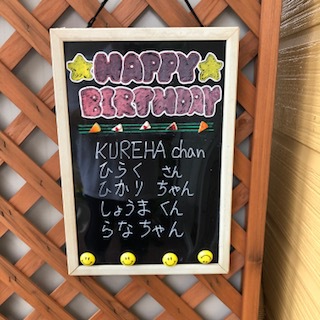 HAPPY
BIRTHDAY
KUREHA chan
ひらく さん
ひかり ちゃん
しょうま くん
らなちゃん